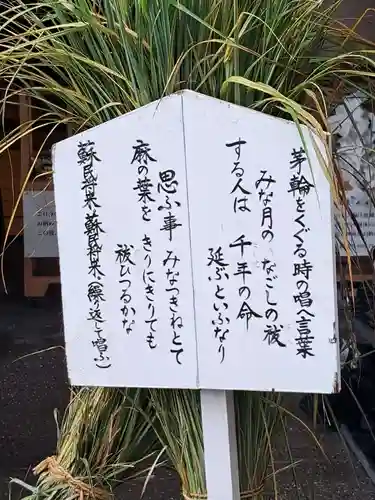 茅輪をくぐる時の唱へ言葉
みな月の なごしの祓
する人は 千年の命
延ぶといふなり
思ふ事 みなつきねとて
麻の葉を きりにきりても
祓ひつるかな
蘇民将来 蘇民将来(繰返して唱ふ)